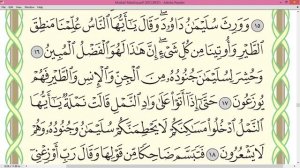 ١٥ وَوَرِثَ سُلَيْمَٰنُ دَاوُۥدَ ۖ وَقَالَ يَٰٓأَيُّهَا ٱلنَّاسُ عُلِّمْنَا مَنطِقَ
ٱلطَّيْرِ وَأُوتِينَا مِن كُلِّ شَىْءٍ ۖ إِنَّ هَٰذَا لَهُوَ ٱلْفَضْلُ ٱلْمُبِينُ ١٦
وَحُشِرَ لِسُلَيْمَٰنَ جُنُودُهُۥ مِنَ ٱلْجِنِّ وَٱلْإِنسِ وَٱلطَّيْرِ فَهُمْ
يُوزَعُونَ ١٧ حَتَّىٰٓ إِذَآ أَتَوْا۟ عَلَىٰ وَادِ ٱلنَّمْلِ قَالَتْ نَمْلَةٌ يَٰٓأَيُّهَا
ٱلنَّمْلُ ٱدْخُلُوا۟ مَسَٰكِنَكُمْ لَا يَحْطِمَنَّكُمْ سُلَيْمَٰنُ وَجُنُودُهُۥ وَهُمْ
لَا يَشْعُرُونَ ١٨ فَتَبَسَّمَ ضَاحِكًا مِّن قَوْلِهَا وَقَالَ رَبِّ أَوْزِعْنِىٓ